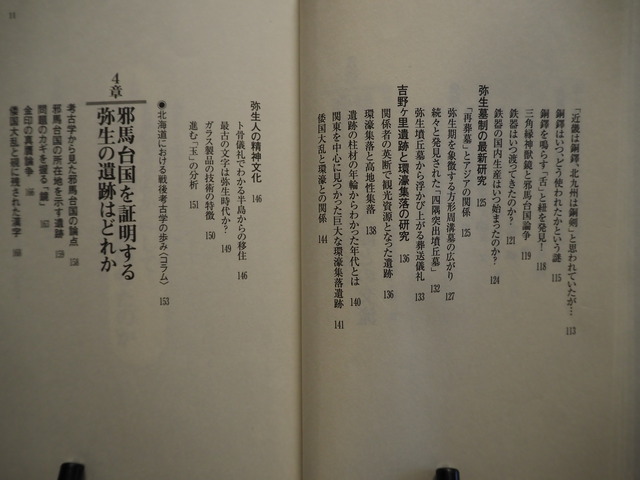 「近畿は銅鐸、北九州は銅剣」と思われていたが… 113
銅鐸はいつ、どう使われたかという謎 115
銅鐸を鳴らす「舌」と紐を発見！ 118
三角縁神獣鏡と邪馬台国論争 119
鉄器はいつ渡ってきたのか？ 121
鉄器の国内生産はいつ始まったのか？ 124
弥生墓制の最新研究 125
「再葬墓」とアジアの関係 125
弥生期を象徴する方形周溝墓の広がり 127
続々と発見された「四隅突出墳丘墓」 132
弥生墳丘墓から浮かび上がる葬送儀礼 133
吉野ヶ里遺跡と環濠集落の研究 136
関係者の英断で観光資源となった遺跡 136
環濠集落と高地性集落 138
遺跡の柱材の年輪からわかった年代とは 140
関東を中心に見つかった巨大な環濠集落遺跡 141
倭国大乱と環濠との関係 144
弥生人の精神文化 146
ト骨儀礼でわかる半島からの移住 146
最古の文字は弥生時代か？ 149
ガラス製品の技術の特徴 150
進む「玉」の分析 151
●北海道における戦後考古学の歩み〈コラム〉 153
4章
邪馬台国を証明する
弥生の遺跡はどれか
考古学から見た邪馬台国の論点 158
邪馬台国の所在地を示す遺跡 159
問題のカギを握る「鏡」
金印の真贋論争
倭国大乱と硯に残された漢字